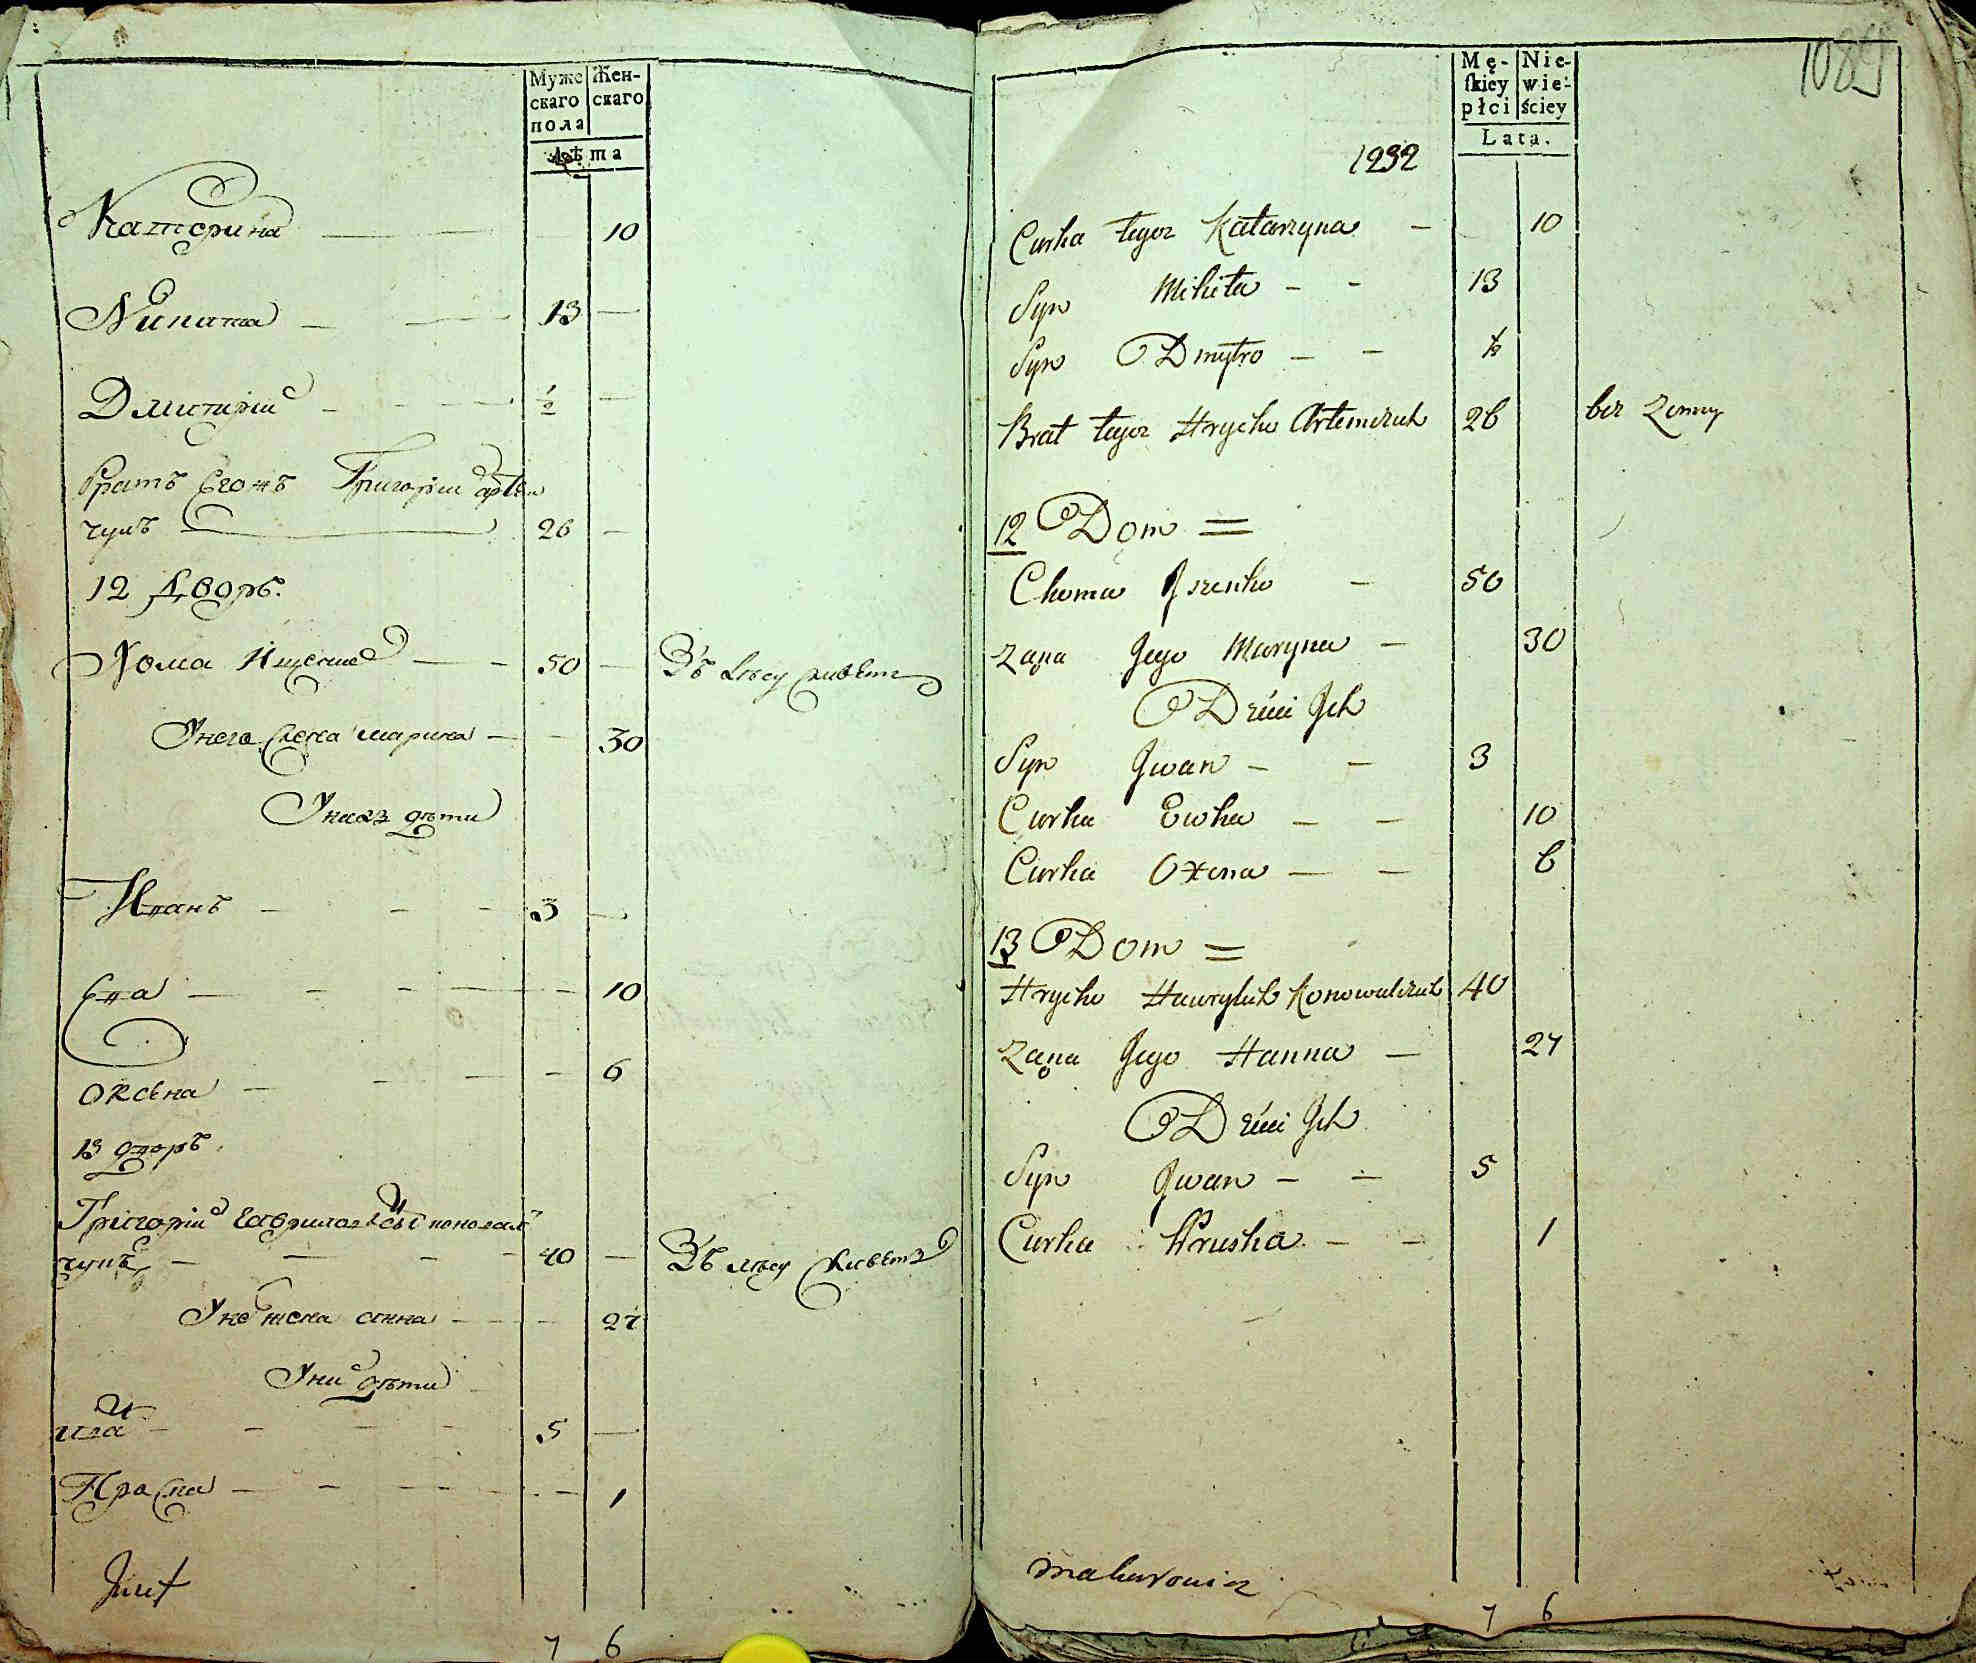 Муже Жен-
скаго скаго
пола
Лѣта
Катерина — — 10
Никита — — 13 —
Дмитрій — — ½ —
братъ Егожъ Григорій артем
чукъ — 26 —
12 дворъ.
Хома Ищенко — 50 —
Унего жена марина — 30
Унихъ дѣти
Иванъ — 3 —
Ева — 10
Оксена — 6
13 дворъ.
Григорій Гаврилов коновал
чукъ — 40 —
Уне жена анна — 27
Уни дѣти
— 5 —
— 1
Józef
7 6
Mę- Nie-
skiey wie-
płci ściey
Lata.
1089
1232
Curka tegoz Katarzyna — 10
Syn Mikita — — 13
Syn Dmytro — — ½
Brat tegoz Hrycko Artemczuk 26 bez Zenny
12 Dom =
Choma Iszenko — 50
Zona Jego Maryna — 30
Dzieci Ich
Syn Iwan — — 3
Curka Ewka — — 10
Curka Oxena — — 6
13 Dom =
Hrycko Hawryluk Konowalczuk 40
Zona Jego Hanna — 27
Dzieci Ich
Syn Iwan — — 5
Curka Pruska — — 1
Makarowicz
7 6